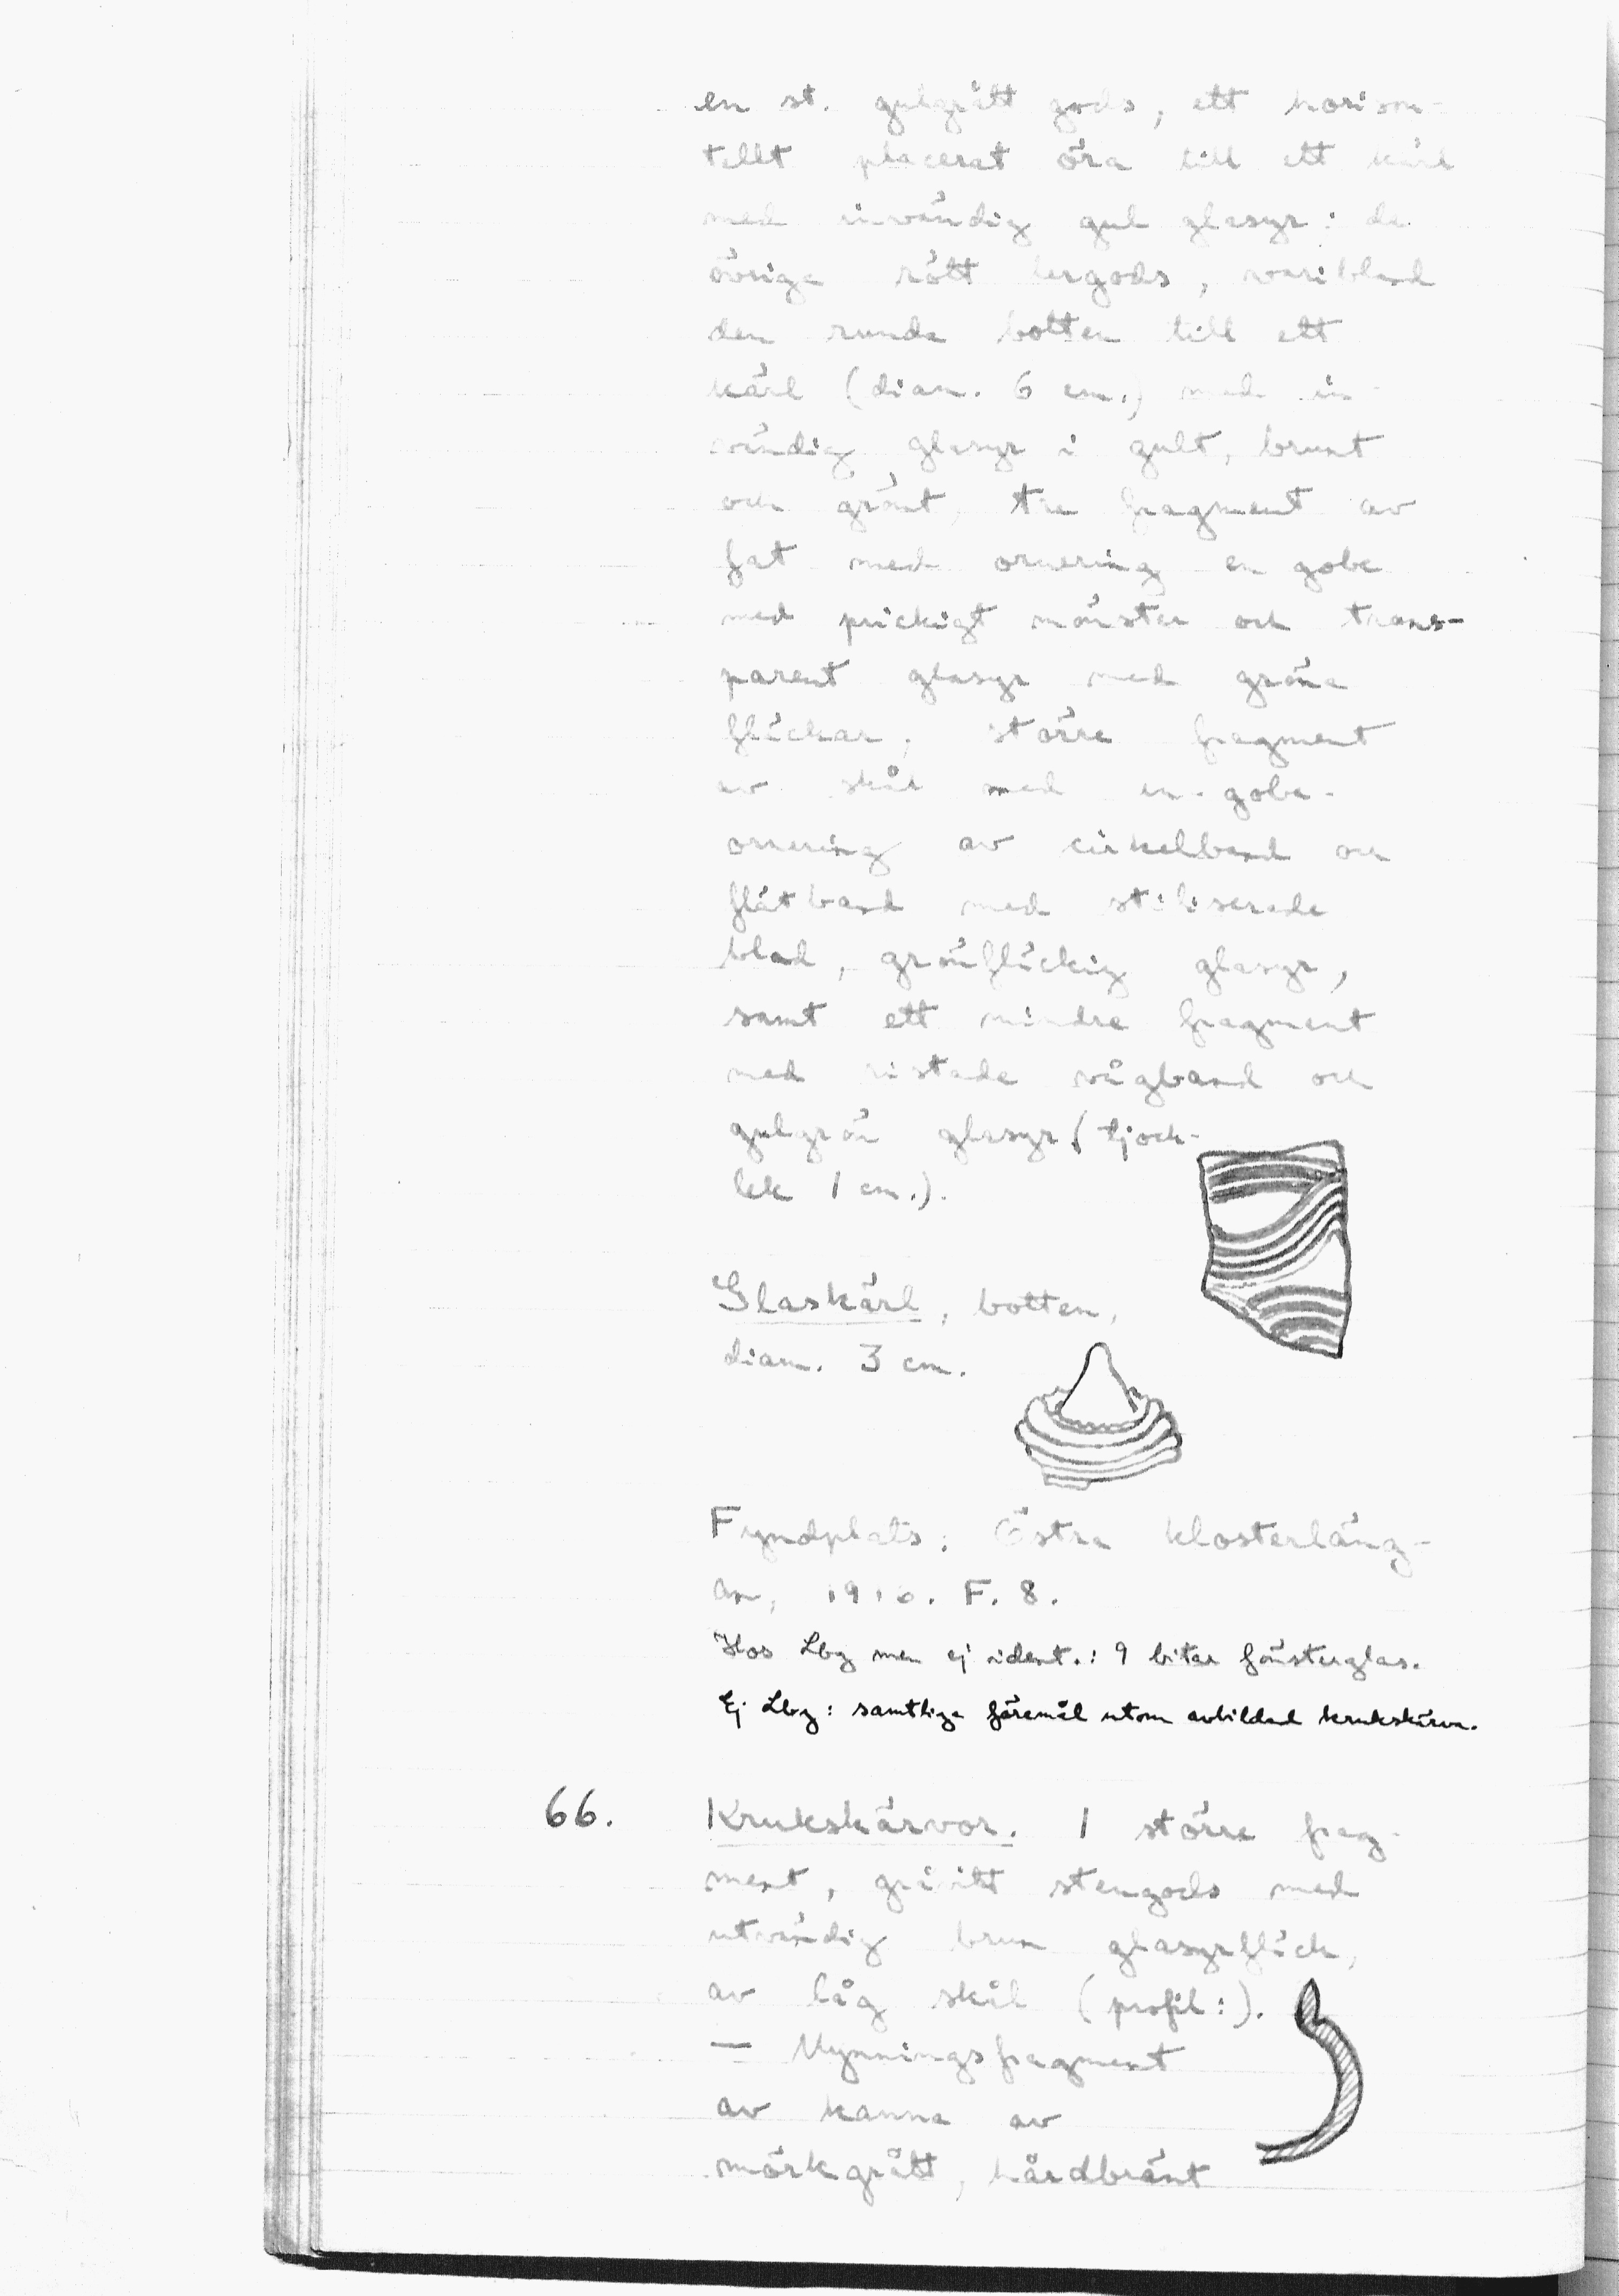 en st. gulgrått gods, ett horison-
tellt placerat öra till ett kärl
med invändig gul glasyr: de
övriga rött lergods, varibland
den runda botten till ett
kärl (diam. 6 cm.) med in-
vändig glasyr i gult, brunt
och grönt, tre fragment av
fat med ornering en gobe
med prickigt mönster och trans-
parent glasyr med gröna
fläckar, större fragment
av skål med en-gobe-
ornering av cirkelband och
flätband med stiliserade
blad, grönfläckig glasyr,
samt ett mindre fragment
med ristade vågband och
gulgrön glasyr (tjock-
lek 1 cm.).
Glaskärl, botten,
diam. 3 cm.
Fyndplats: Östra klosterläng-
an, 1910. F. 8.
Hos Lbg men ej ident.: 9 bitar fönsterglas.
Ej Lbg: samtliga föremål utom avbildad krukskärva.
66. Krukskärvor. 1 större frag-
ment, gråvitt stengods med
utvändig brun glasyrfläck,
av låg skål (profil:).
— Mynningsfragment
av kanna av
mörkgrått, hårdbränt